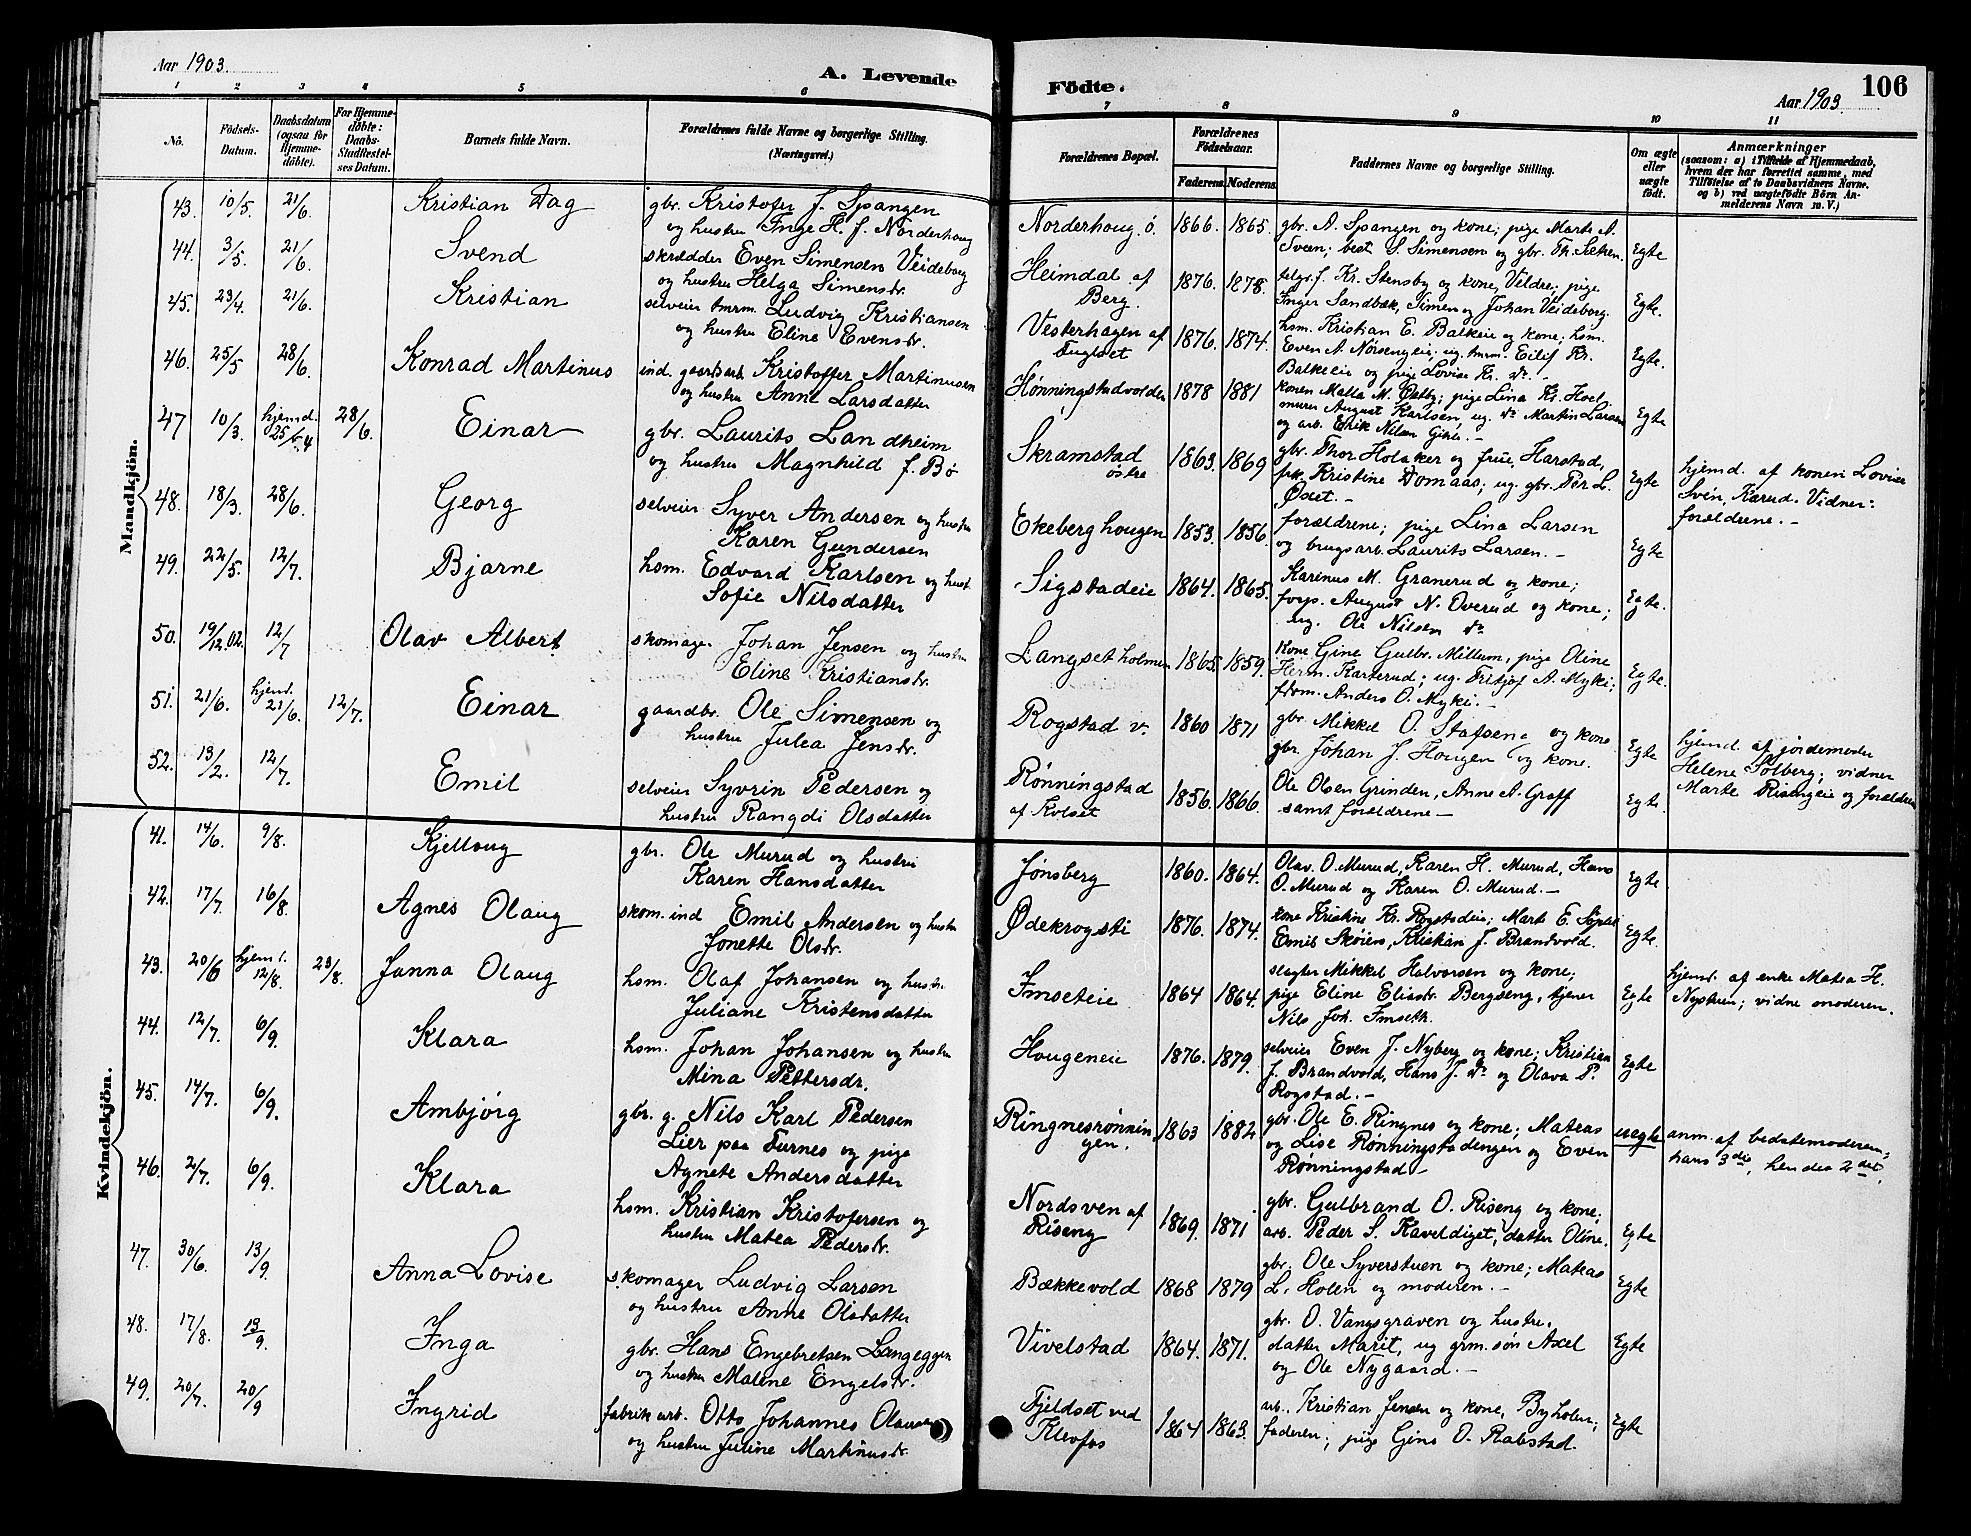 Aar 1903.
A. Levende
Födte.
Aar 1903
106
1 2 3 4 5 6 7 8 9 10 11
No.
Födsels-
Datum.
Daabsdatum
(ogsaa for
Hjemme-
döbte).
For Hjemme-
döbte:
Daabs-
Stadfæstel-
ses Datum.
Barnets fulde Navn.
Forældrenes fulde Navne og borgerlige Stilling.
(Næringsvei.)
Forældrenes Bopæl.
Forældrenes
Födselsaar.
Faderens. Moderens.
Faddernes Navne og borgerlige Stilling.
Om ægte
eller
uægte
födt.
Anmærkninger
(saasom: a) i Tilfælde af Hjemmedaab,
hvem der har forrettet samme, med
Tilföielse af to Daabsvidners Navne,
og b) ved uægtefödte Börn An-
melderens Navn m. V.)
Mandkjön.
43. 10/5. 21/6. Kristian Dag
gbr. Kristofer J. Spangen
og hustru Inge H. f. Norderhoug
Norderhoug. ö. 1866. 1865.
gbr. A. Spangen og kone; pige Marte A.
Sveen; best. S. Simensen og gbr. Th. Sæten.
Egte
44. 3/5. 21/6. Svend
skrædder Even Simensen Veideborg
og hustru Helga Simensdr.
Heimdal af
Berg. 1876. 1878.
telgr.f. Kr. Stensby og kone, Veldre; pige
Inger Sandbæk, Simen og Johan Veideborg.
Egte.
45. 23/4. 21/6. Kristian
selveier tmrm. Ludvig Kristiansen
og hustru Eline Evensdr.
Vesterhagen af
Fuglset 1876. 1874.
hsm. Kristian E. Balkeie og kone; hsm.
Even A. Nörsengeie; ug. tmrm. Eilif Kr.
Balkeeie og pige Lovise Kr. do. -
Egte.
46. 25/5 28/6. Konrad Martinus
ind. gaardsarb. Kristoffer Martinusen
og hustru Anne Larsdatter
Hønningstadvolden 1878 1881
konen Malla M. Østby; pige Lina Kr. Hoel,
murer August Karlsen, ug. do Martin Larsen
og arb. Erik Nilsen
Egte
47 10/3. hjemd. 28/6. Einar
gbr. Laurits Landheim
og hustru Magnhild f. Bø
Skramstad
östre 1863. 1869
gbr. Thor Holaker og frue, Harstad,
frk. Kristine Domaas; ug. gbr. Per L.
Ødet. -
Egte
hjemd. af konen Lovise
Svén, Karud. Vidner:
forældrene. -
48. 18/3. 28/6. Georg
selveier Syver Andersen og hustru
Karen Gundersen
Ekeberghougen 1853. 1856.
forældrene; pige Lina Larsen
og brugsarb. Laurits Larsen. -
Egte
49. 22/5. 12/7. Bjarne
hsm. Edvard Karlsen og hust.
Sofie Nilsdatter
Sigstadeie 1864. 1865.
Karinus M. Granerud og kone;
forp. August N. Overud og kone;
ug. Ole Nilsen do
Egte.
50. 19/12.02. 12/7 Olav Albert
skomager Johan Jensen og hustru
Eline Kristiansdr.
Langsetholmen 1865. 1859.
kone Gine Gulbr. Millum, pige Oline
Herm. Karterud; ug. Fritjof A. Myki;
fdom. Anders O. Myki. -
Egte.
51. 21/6. hjemd. 21/6. 12/7. Einar
gaardbr. Ole Simensen og
hustru Julea Jensdr.
Rogstad v. 1860 1871
gbr. Mikkel O. Stafsen og kone
gbr. Johan J. Hougen og kone.
Egte
hjemd. af jordemoder
Helene Solberg; vidner
Marte Risengeie og forældrene
52. 13/2. 12/7. Emil
selveier Syvrin Pedersen og
hustru Rangdi Olsdatter
Rønningstad
af Kolset 1856. 1866.
Ole Olsen Grinden, Anne A. Graff
samt forældrene -
Egte.
Kvindekjön.
41. 14/6. 9/8. Kjellaug
gbr. Ole Murud og hustru
Karen Hansdatter
Jønsberg 1860. 1864.
Olav O. Murud, Karen H. Murud, Hans
O. Murud og Karen O. Murud. -
Egte
42. 17/7. 16/8. Agnes Olaug
skom. ind Emil Andersen og hustru
Jonette Olsdr.
Ødekrogsti 1876. 1874.
kone Kristine Kr. Rogstadeie; Marte E.
Emil Skøien, Kristian J. Brandvold.
Egte.
43. 20/6 hjemd. 12/8. 23/8. Janna Olaug
hsm. Olaf Johansen og hustru
Juliane Kristensdatter
Imseteie 1864 1864.
slagter Mikkel Halvorsen og kone;
pige Eline Eliasdr. Bergseng, tjener
Nils Joh. Imseth.
Egte
hjemd. af enke Matea H.
Nystuen; vidne moderen.
44. 12/7. 6/9. Klara
hsm. Johan Johansen og hustru
Mina Pettersdr.
Hougeneie 1876. 1879.
selveier Even J. Nyberg og kone; Kristian
J. Brandvold, Hans J. do og Olava P.
Rogstad. -
Egte
45. 14/7. 6/9. Ambjörg
gbr. g. Nils Karl Pedersen
Lier paa Furnes og pige
Agnete Andersdatter
Ringnesrønnin
gen. 1863 1882
gbr. Ole E. Ringnes og kone; Mateas
og Lise Rønningstadengen og Even
Rønningstad -
uægte
anm. af bedstemoderen;
hans 3die, hendes 2det.
46. 2/7. 6/9. Klara
hsm. Kristian Kristofersen og
hustru Matea Pedersdr.
Nordsven af
Riseng 1869. 1871
gbr. Gulbrand O. Riseng og kone;
arb. Peder S. Kaveldiget, datter Oline.
Egte
47. 30/6. 13/9. Anna Lovise
skomager Ludvig Larsen
og hustru Anne Olsdatter
Bækkevold 1868 1879
gbr. Ole Syverstuen og kone; Mateas
L. Holen og moderen. -
Egte
48. 17/8. 13/9. Inga
gbr. Hans Engebretsen Langeggen
og hustru Malene Engelsdr.
Vivelstad 1864. 1871.
gbr. O. Vangsgraven og hustru.
datter Marit, ug grm. søn Axel
og Ole Nygaard. -
Egte
49. 20/7. 20/9 Ingrid
fabrik arb. Otto Johannes Olausen
og hustru Juline Martinusdr.
Fjeldset ved
Klevfos 1864 1863.
arb. Kristian Jensen og kone, Byholen;
faderen; pige Gina O. Rabstad.
Egte